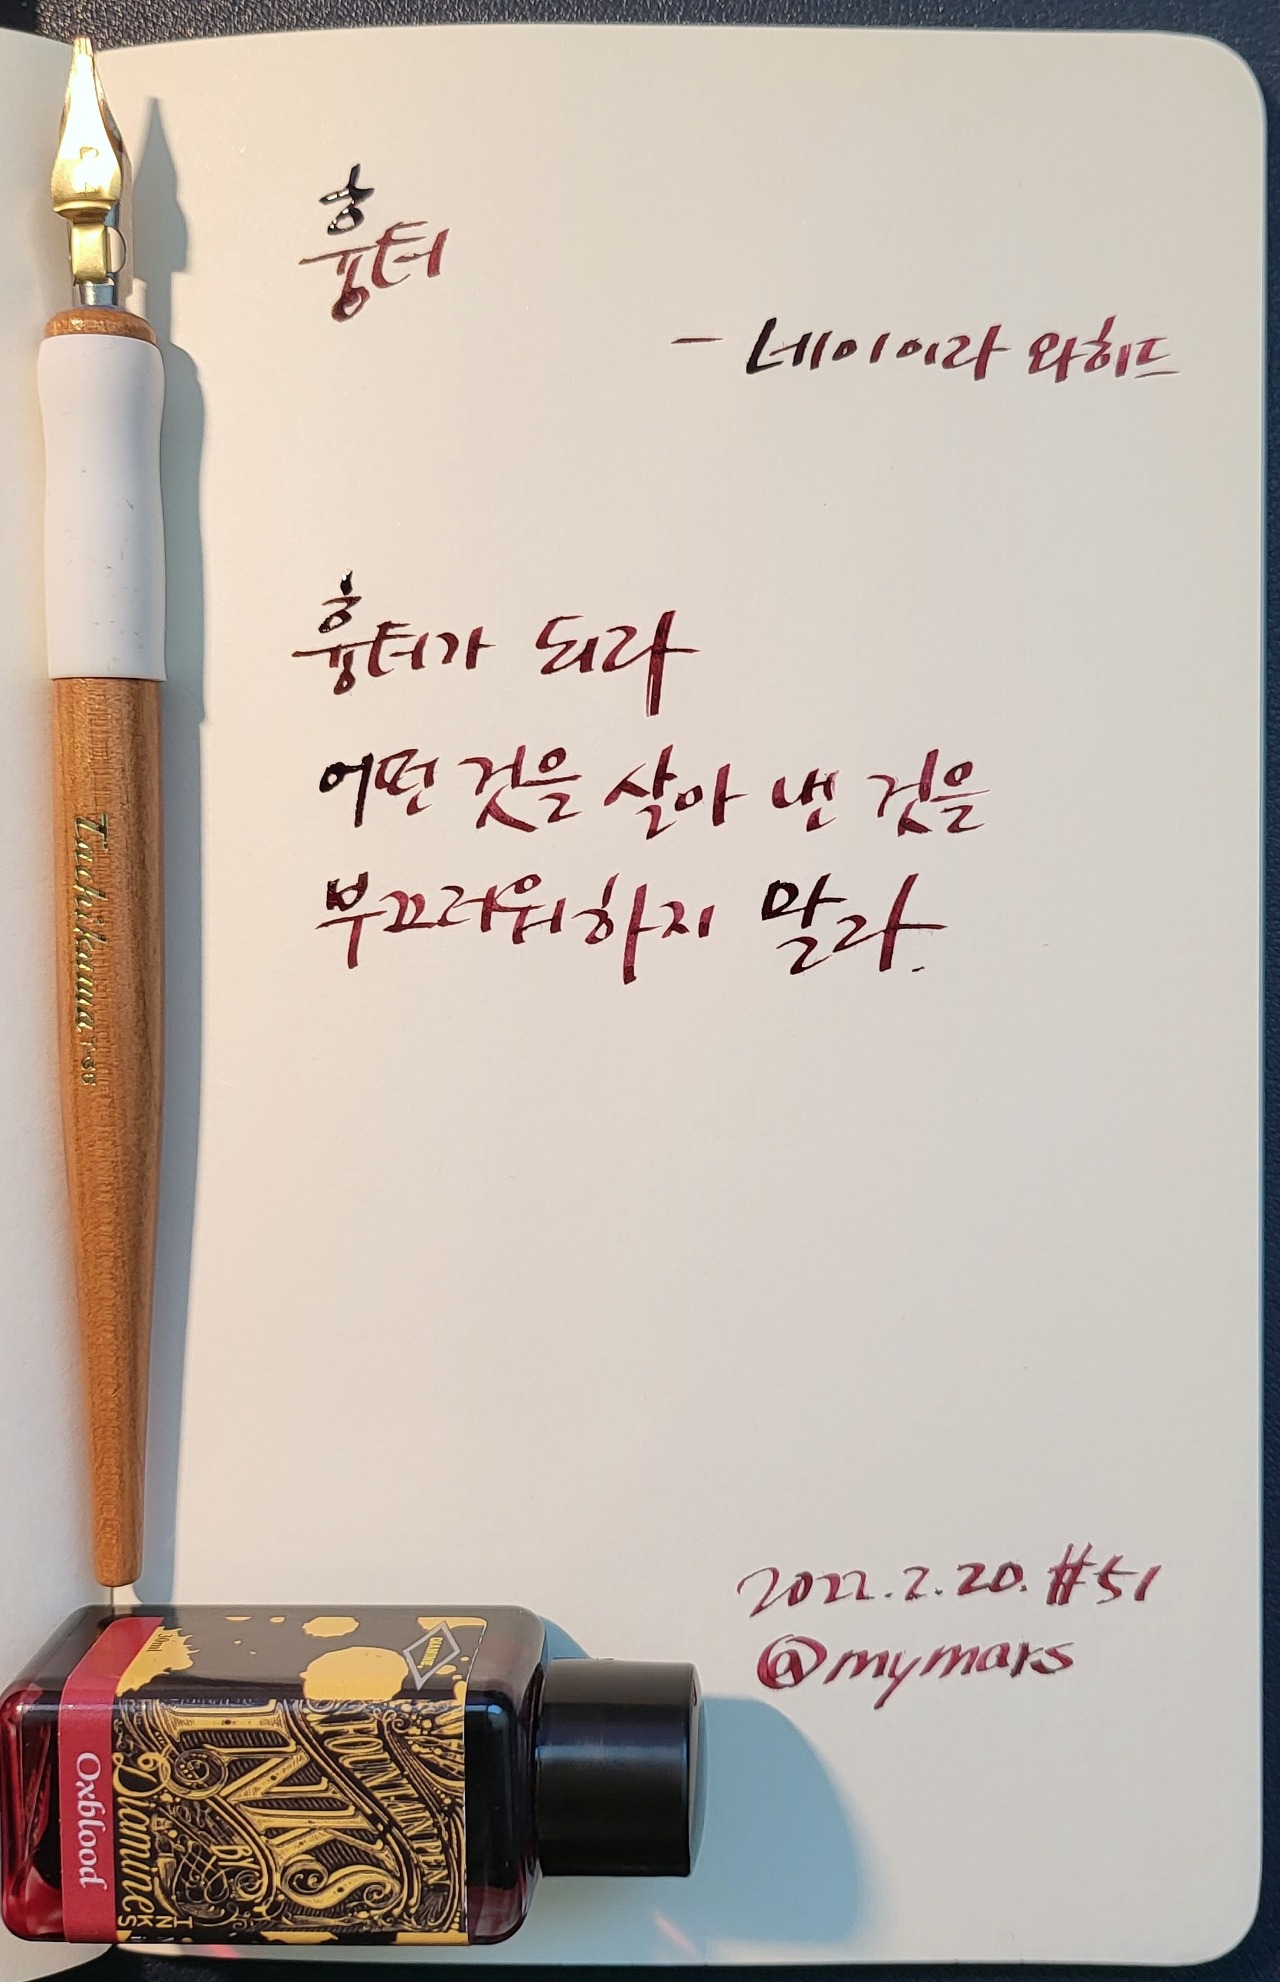 흉터
- 네이이라 와히드
흉터가 되라
어떤 것을 살아 낸 것을
부끄러워하지 말라.
2022.2.20. #51
@mymars
Tachikawa T-36
30ml
DIAMINE
Oxblood
Diamine
INKS
FOUNTAIN PEN
INKS
BY